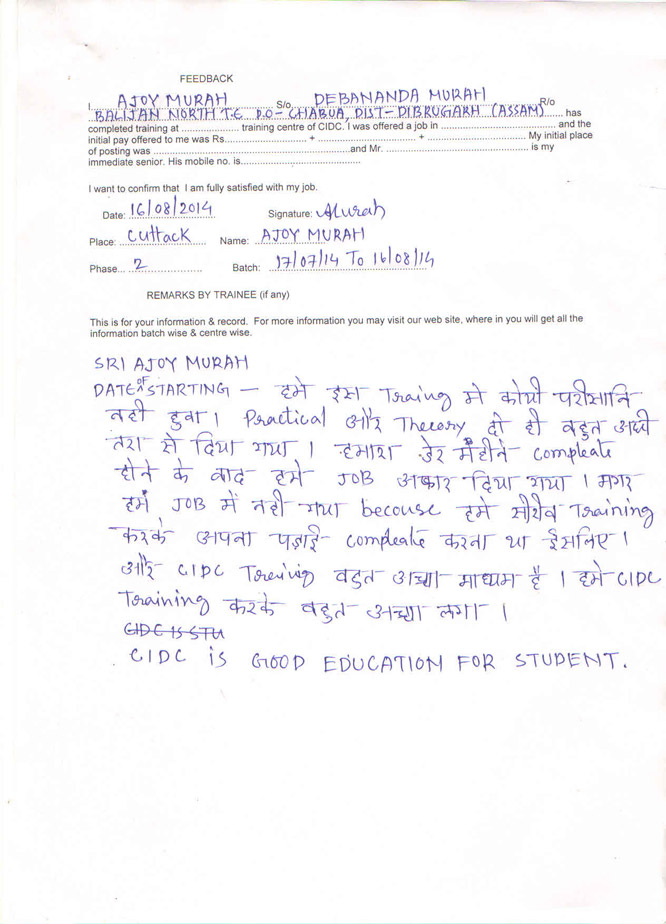 FEEDBACK
I AJOY MURAH S/o DEBANANDA MURAH R/o
BALIJAN NORTH T.E P.O- CHABUA, DIST- DIBRUGARH (ASSAM) has
completed training at .................... training centre of CIDC. I was offered a job in ........................................ and the
initial pay offered to me was Rs............................ + .................................... + .................................... My initial place
of posting was ....................................................................and Mr. ................................................. is my
immediate senior. His mobile no. is..........................................
I want to confirm that I am fully satisfied with my job.
Date: 16/08/2014 Signature: AMurah
Place: Cuttack Name: AJOY MURAH
Phase... 2 Batch: 17/07/14 To 16/08/14
REMARKS BY TRAINEE (if any)
This is for your information & record. For more information you may visit our web site, where in you will get all the
information batch wise & centre wise.
SRI AJOY MURAH
DATE OF STARTING — हमे इस Traing मे कोयी परीसानि
नही हुवा। Practical और Theeory दो ही बहुत अछी
तरा से दिया गया। हमारा डेर महीने compleate
होने के बाद हमे JOB अफार दिया गया। मगर
हमें JOB में नही गया becouse हमे Training
करके अपना पड़ाई compleate करना था ईसलिए।
और CIDC बहुत अच्छा माध्यम है। हमे CIDC
Training करके बहुत अच्छा लगा।
CIDC IS STU
CIDC is GOOD EDUCATION FOR STUDENT.